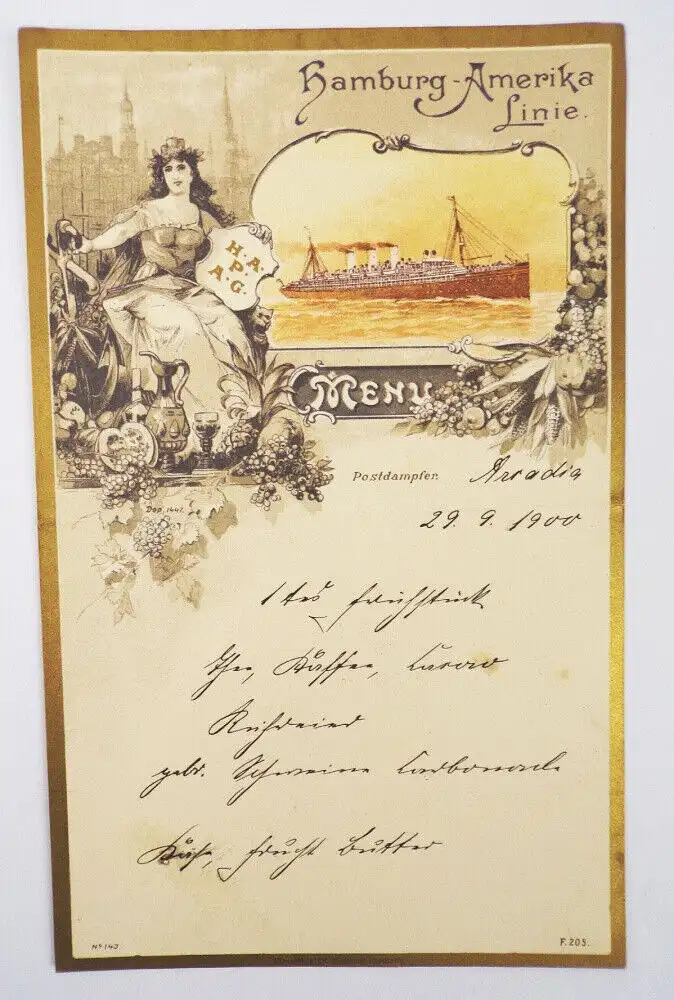 Hamburg-Amerika
Linie.
H.A.
P.
A.G.
MENU
Postdampfer. Arcadia
29. 9. 1900
1tes Frühstück
Thee, Kaffee, Cacao
Rühreier
gebr. Schweine Carbonade
Käse, Frucht Butter
Dep. 1447.
Nº 140
F. 205.